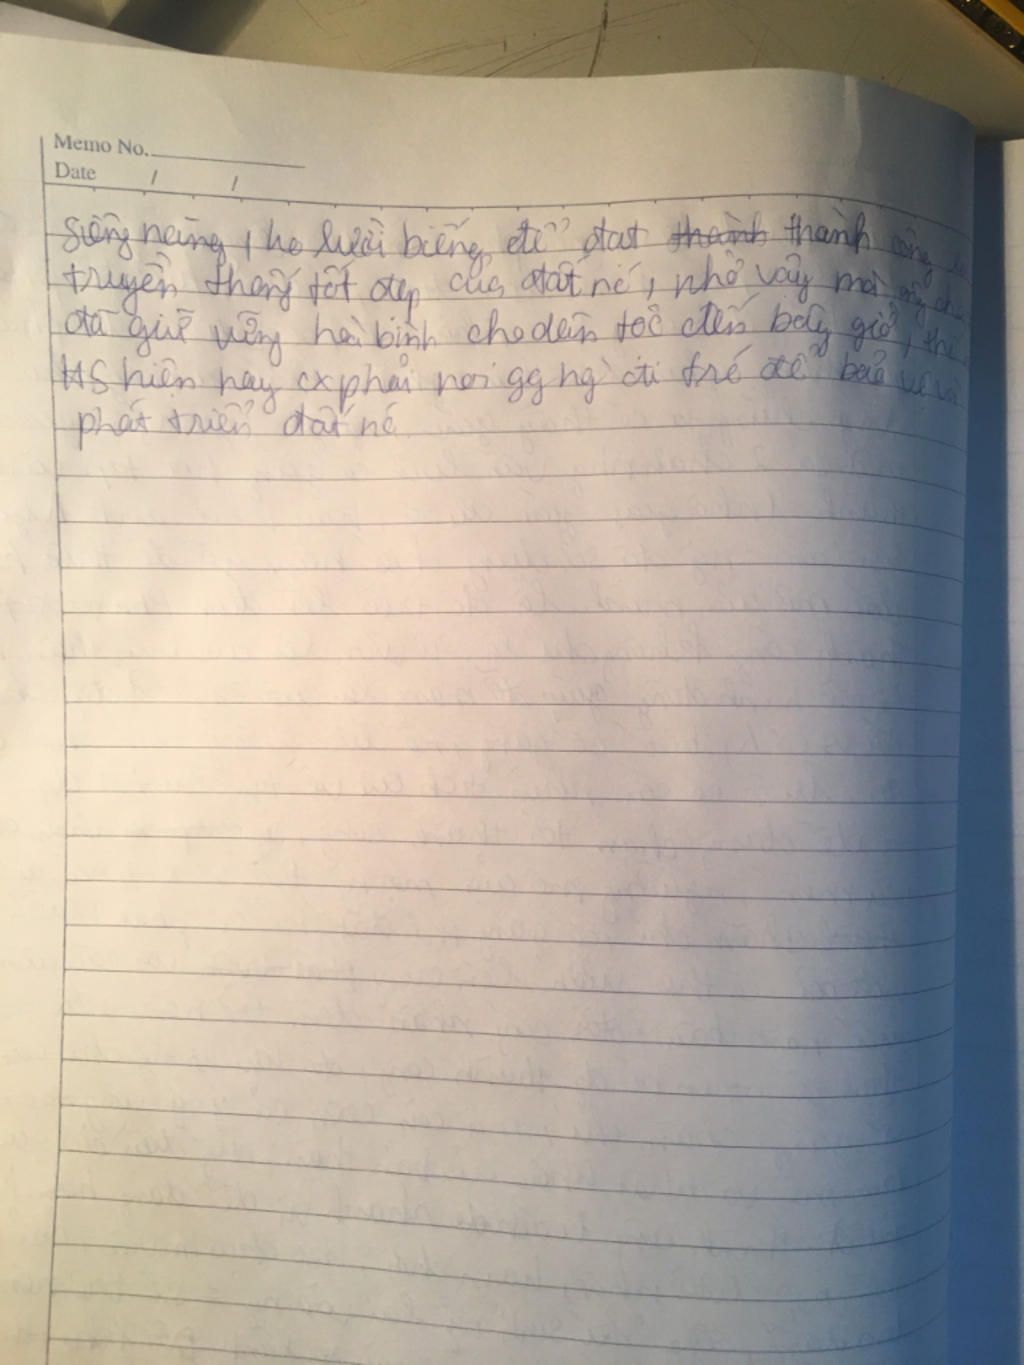 Memo No.
Date / /
siêng năng, ko lười biếng để đạt thành thành công
truyền thống tốt đẹp của đất nc, nhờ vậy mà
đã giữ vững hoà bình cho dân tộc đến bây giờ, thì
HS hiện nay cx phải noi gg ng đi trc để bảo vệ và
phát triển đất nc